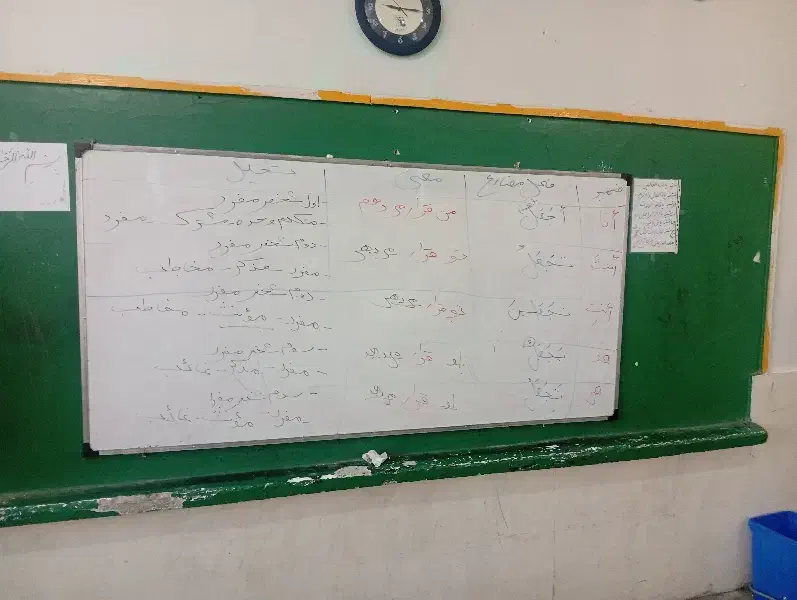 ضمیر فعل مضارع معنی تحلیل
أنا أَجعَلُ من قرار می دهم - اول شخص مفرد
- متکلم وحده مشترک - مفرد
أنتَ تَجعَلُ تو قرار می دهی - دوم شخص مفرد
- مفرد - مذکر - مخاطب
أنتِ تَجعَلینَ تو قرار می دهی - دوم شخص مفرد
- مفرد - مؤنث - مخاطب
هو یَجعَلُ او قرار می دهد - سوم شخص مفرد
- مفرد - مذکر - غائب
هی تَجعَلُ او قرار می دهد - سوم شخص مفرد
- مفرد - مؤنث - غائب
بسم الله